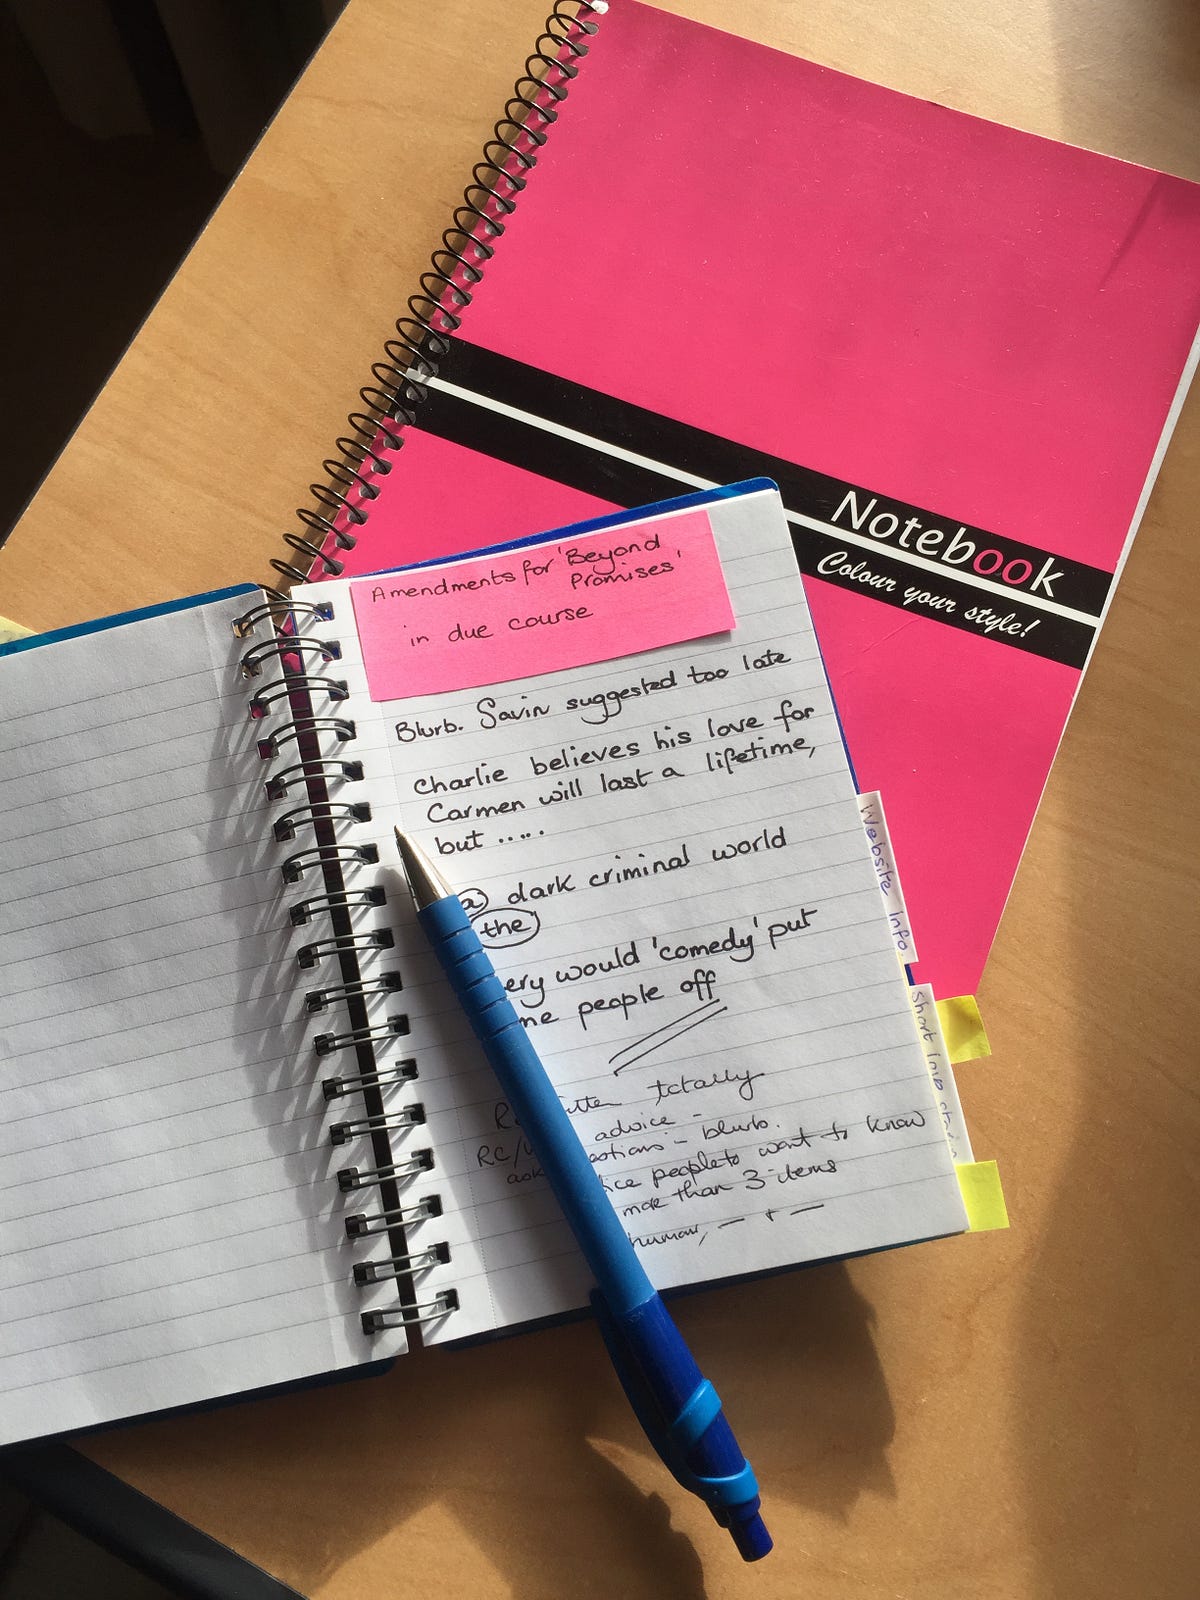 Notebook
Colour your style!
Amendments for 'Beyond
Promises'
in due course
Blurb. Savin suggested too late
Charlie believes his love for
Carmen will last a lifetime,
but .....
a dark criminal world
the
ery would 'comedy' put
me people off
totally
advice -
RC/ estions - blurb.
ask people to want to know
more than 3 items
humour, — + —
Website Info.
Short